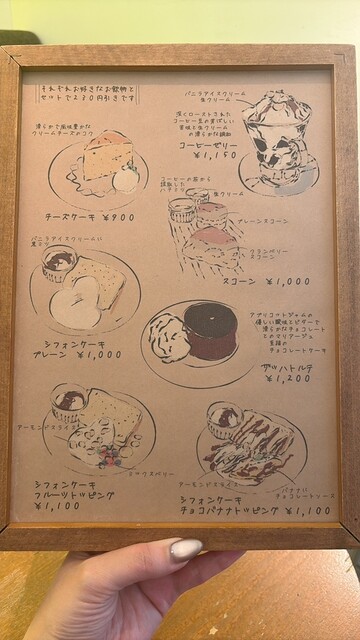 それぞれお好きなお飲物と
セットで220円引きです
バニラアイスクリーム
生クリーム
深くローストされた
コーヒー豆の香ばしい
苦味と生クリーム
の滑らかな調和
コーヒーゼリー
¥1,150
滑らかで風味豊かな
クリームチーズのコク
チーズケーキ ¥900
コーヒーの花から
採取した
ハチミツ
生クリーム
プレーンスコーン
クランベリー
スコーン
スコーン ¥1,000
バニラアイスクリームに
黒ミツ
シフォンケーキ
プレーン ¥1,000
アプリコットジャムの
優しい酸味とビターで
滑らかなチョコレート
とのマリアージュ
至極の
チョコレートケーキ
ザッハトルテ
¥1,200
アーモンドスライス
ミックスベリー
シフォンケーキ
フルーツトッピング
¥1,100
アーモンドスライス
バナナに
チョコレートソース
シフォンケーキ
チョコバナナトッピング ¥1,100